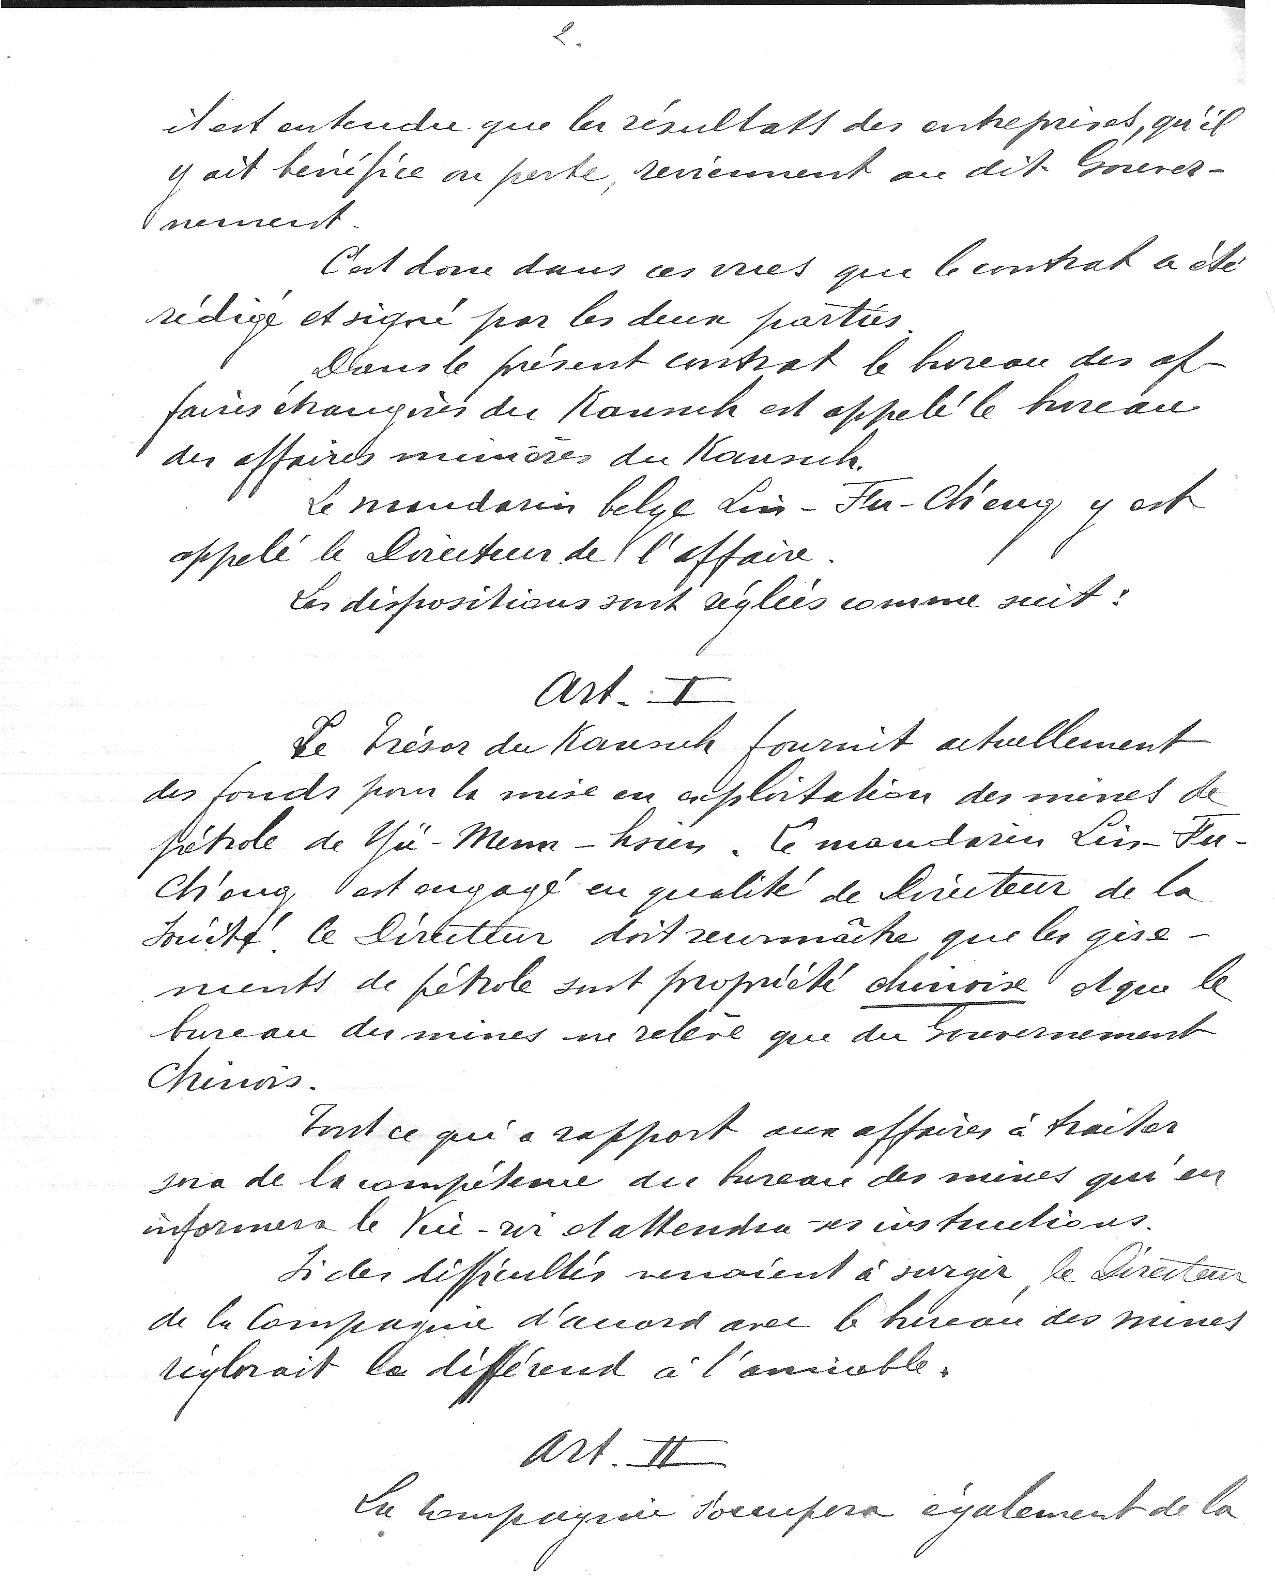 2.
il est entendu que les résultats des entreprises, qu'il
y ait bénéfice ou perte, reviennent au dit Gouver-
nement.
C'est donc dans ces vues que le contrat a été
rédigé et signé par les deux parties.
Dans le présent contrat le bureau des af-
faires étrangères du Kansuh est appelé le bureau
des affaires minières du Kansuh.
Le mandarin belge Lin-Fu-Ch'eng y est
appelé le Directeur de l'affaire.
Les dispositions sont réglées comme suit :
Art. I
Le Trésor du Kansuh fournit actuellement
des fonds pour la mise en exploitation des mines de
pétrole de Yü-Menn-hsien. Le mandarin Lin-Fu-
Ch'eng est engagé en qualité de Directeur de la
Société. Ce Directeur doit reconnaître que les gise-
ments de pétrole sont propriété chinoise et que le
bureau des mines ne relève que du Gouvernement
Chinois.
Tout ce qui a rapport aux affaires à traiter
sera de la compétence du bureau des mines qui en
informera le et attendra ses instructions.
Si des difficultés venaient à surgir, le Directeur
de la Compagnie d'accord avec le bureau des mines
réglerait le différend à l'amiable.
Art. II
La Compagnie s'occupera également de la